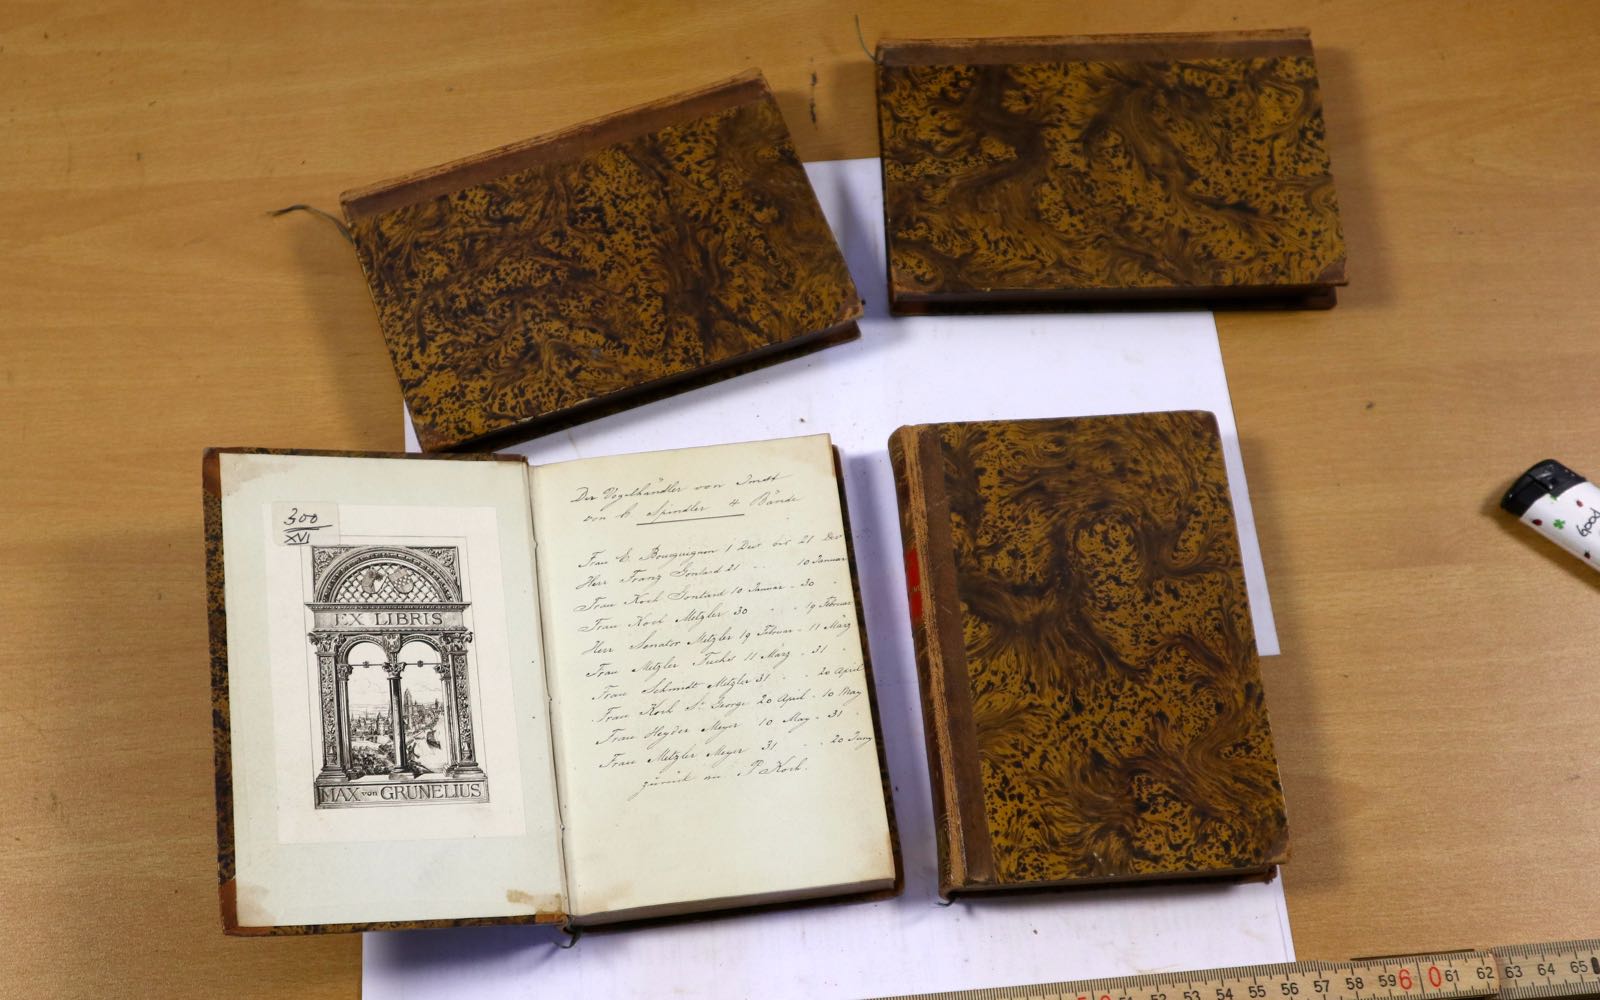 300
XVI
EX LIBRIS
MAX von GRUNELIUS
Der Vogelhändler von Imst
von C. Spindler 4 Bände
Frau E. Bourguignon 1 Dec bis 21 Dec
Herr Franz Gontard 21 " " 10 Januar
Frau Koch Gontard 10 Januar - 30 "
Frau Koch Metzler 30 " - 19 Februar
Herr Senator Metzler 19 Februar - 11 März
Frau Metzler Fuchs 11 März - 31 "
Frau Schmidt Metzler 31 " - 20 April
Frau Koch St. George 20 April - 10 May
Frau Heyder Meyer 10 May - 31 "
Frau Metzler Meyer 31 " - 20 Juny
zurück an P Koch.
Good
51 52 53 54 55 56 57 58 59 60 61 62 63 64 65